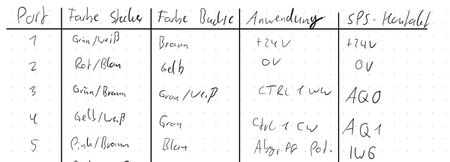 Port Farbe Stecker Farbe Buchse Anwendung SPS-Kontakt
1 Grün/weiß Braun +24V +24V
2 Rot/Blau Gelb 0V 0V
3 Grün/Braun Grau/Weiß CTRL 1 0
4 Gelb/Weiß Grau Ctrl 1 CW AQ1
5 Pink/Braun Blau Abgriff Pot. IW6